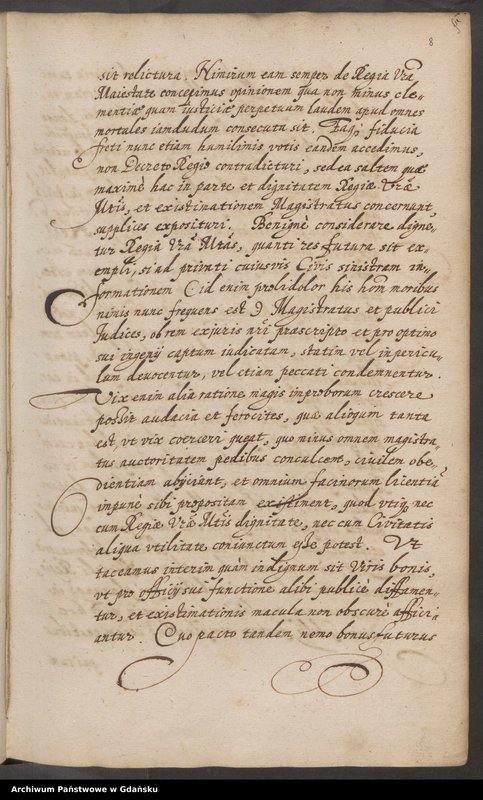 8
sit relictura. Nimirum eam semper de Regia Vrã
Maiestate concepimus opinionem qua non minus cle-
mentiæ quam iusticiæ perpetuum laudem apud omnes
mortales iamdudum consecuta sit. Eaq; fiducia
freti nunc etiam humilimis votis eandem accedimus,
non Decreto Regio contradicturi, sed ea saltem quæ
maximè hac in parte et dignitatem Regiæ Vræ
Mtis, et existimationem Magistratus concernunt,
supplices exposituri. Benignè considerare digne-
tur Regia Vrã Mtas, quanti res futura sit ex-
empli, si ad priuati cuiusvis Civis sinistram in-
formationem (id enim proh dolor his hom moribus
nimis nunc frequens est) Magistratus et publici
Iudices, ob rem ex iuris nri præscripto et pro optimo
sui ingenij captum iudicatam, statim vel in pericu-
lum deuocentur, vel etiam peccati condemnentur.
Vix enim alia ratione magis improborum crescere
possit audacia et ferocites, quæ alioqum tanta
est vt vix coerceri queat, quo minus omnem magistra-
tus auctoritatem pedibus conculcent, ciuilem obe-
dientiam abijciant, et omnium facinorum licentiã
impunè sibi propositam existiment, quod vtiq; nec
cum Regiæ Vræ Mtis dignitate, nec cum Civitatis
aliqua vtilitate coniunctum esse potest. Vt
taceamus interim quàm indignum sit Viris bonis,
vt pro officij sui functione alibi publicè diffamen-
tur, et existimationis macula non obscurè affici-
antur. Quo pacto tandem nemo bonus futurus
Archiwum Państwowe w Gdańsku